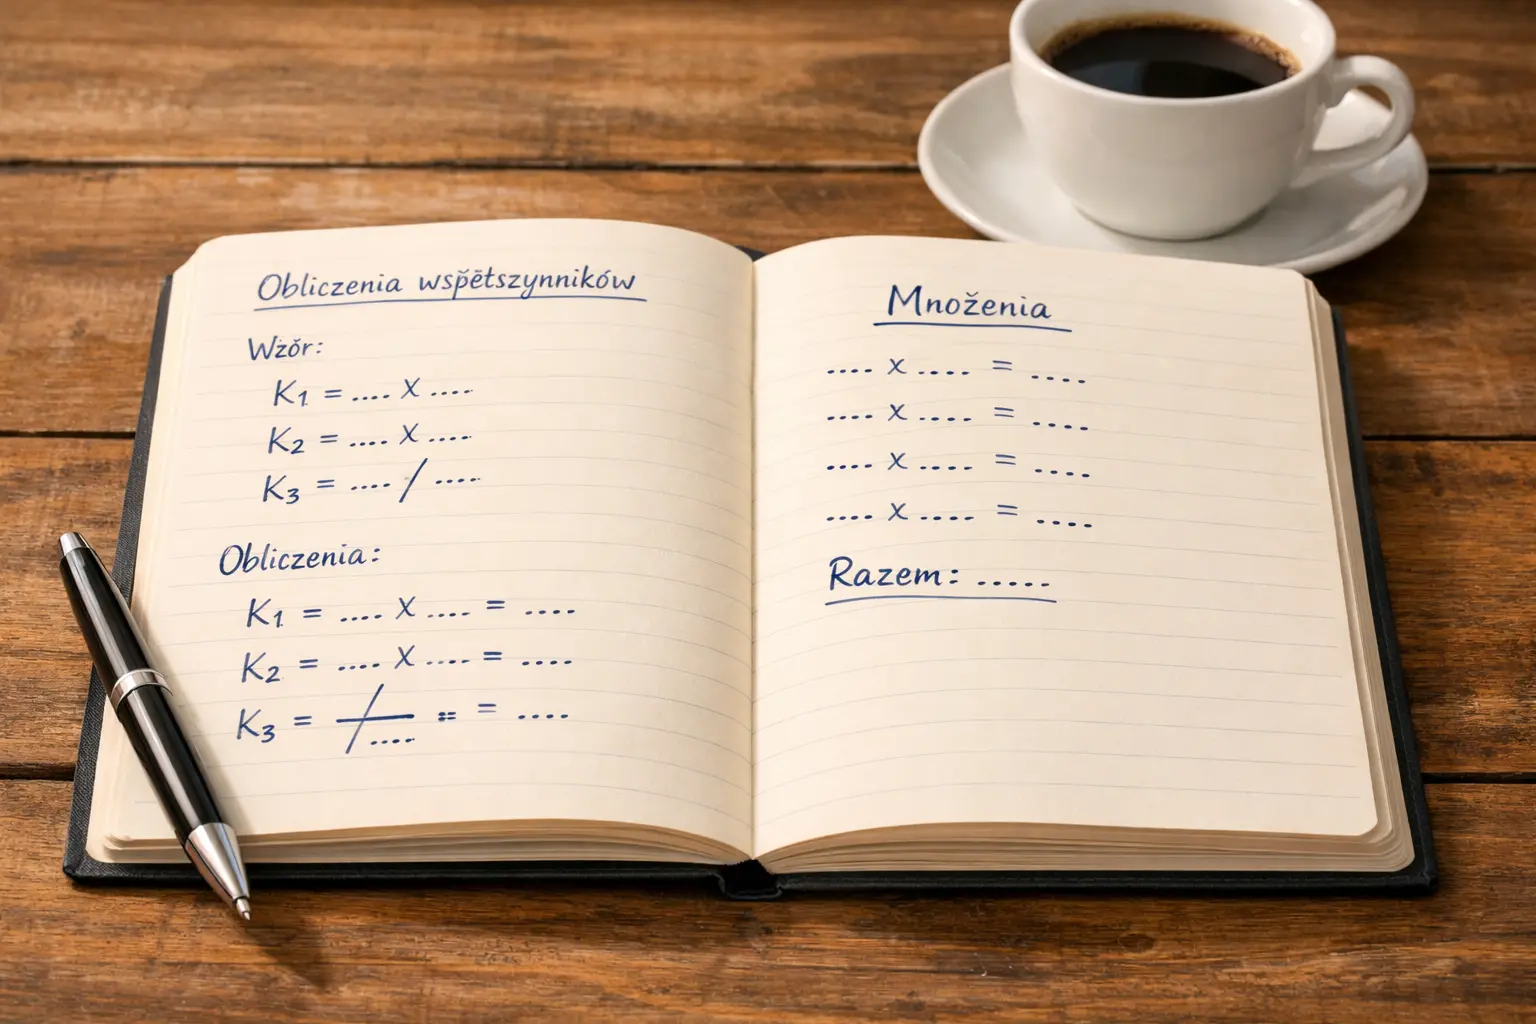 Obliczenia wspětszynników
Wzór:
K₁ = .... X ....
K₂ = .... X ....
K₃ = .... / ....
Obliczenia:
K₁ = .... X .... = ....
K₂ = .... X .... = ....
K₃ = / .... :: = ....
Množenia
.... x .... = ....
.... x .... = ....
.... x .... = ....
.... x .... = ....
Razem: .....